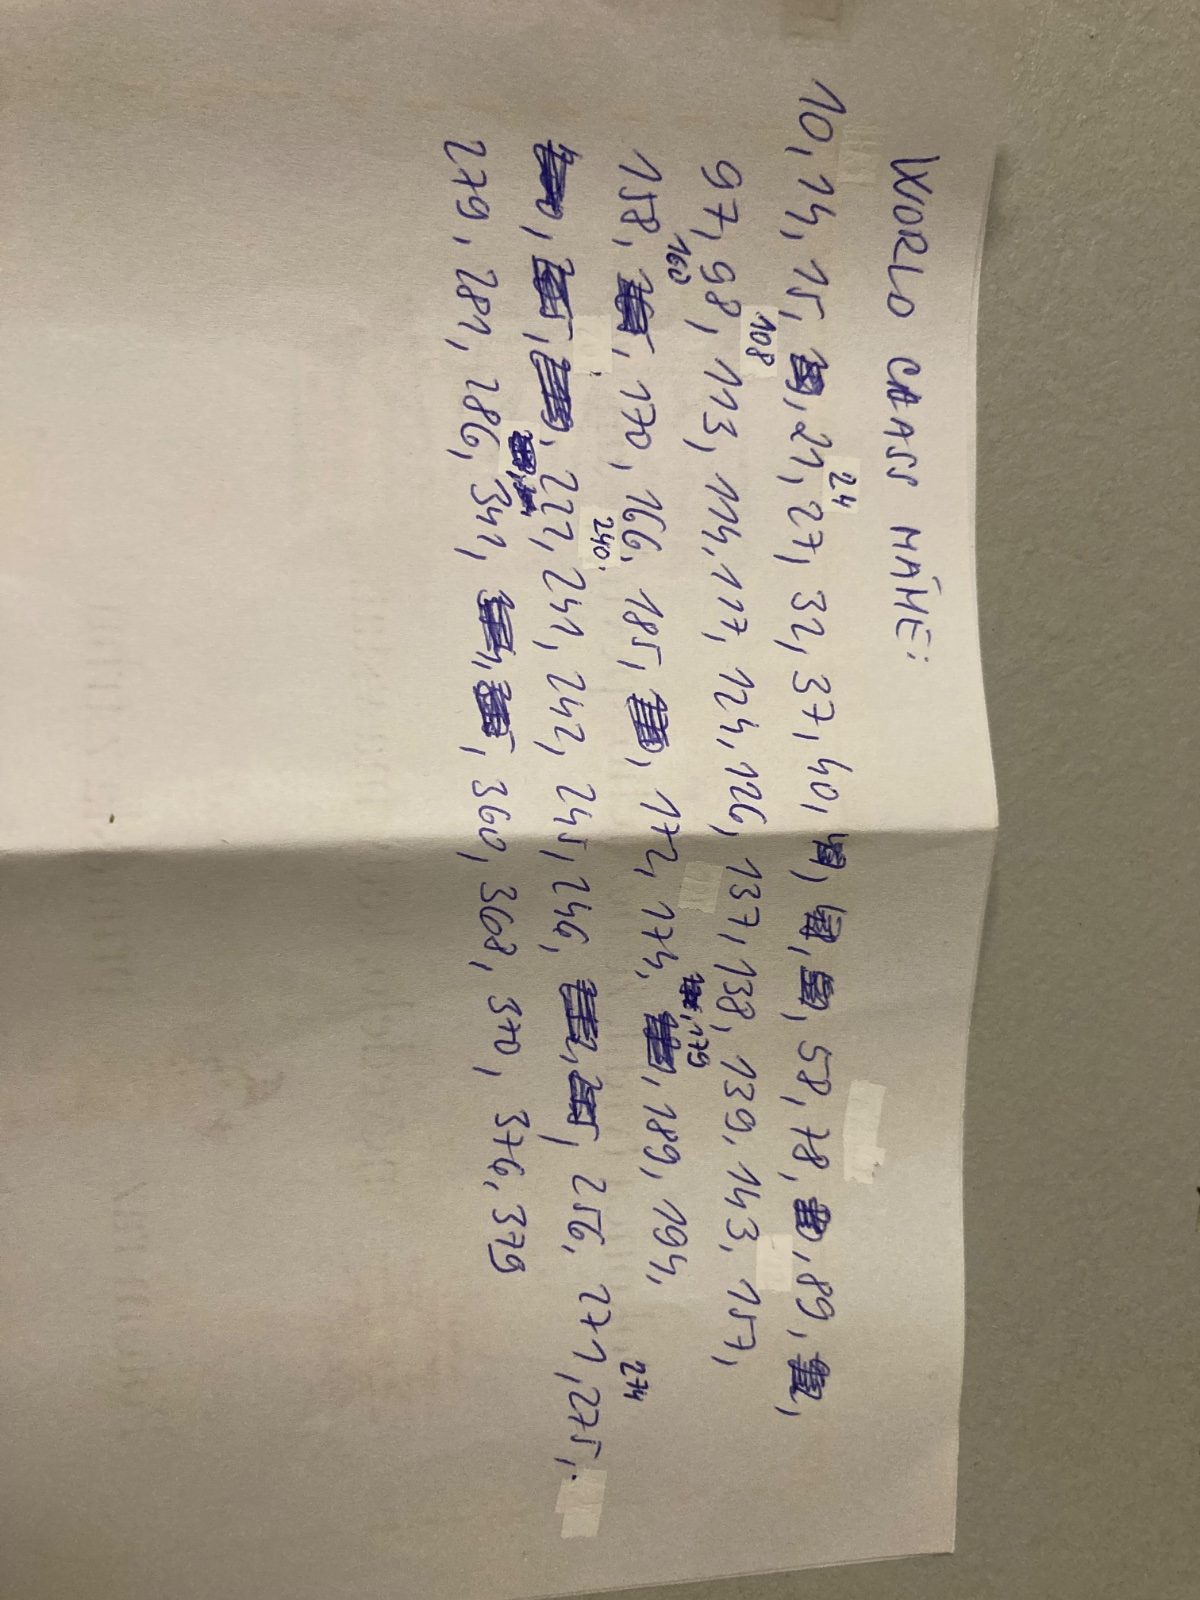 WORLD CLASS MÁME:
10, 14, 15, 21, 24, 27, 32, 37, 40, 58, 78, 89,
97, 98, 108, 113, 114, 117, 124, 126, 137, 138, 139, 143, 157,
158, 160, 170, 166, 185, 172, 174, 179, 189, 194,
222, 240, 241, 242, 245, 246, 256, 271, 274, 275,
279, 281, 286, 341, 360, 368, 370, 376, 379